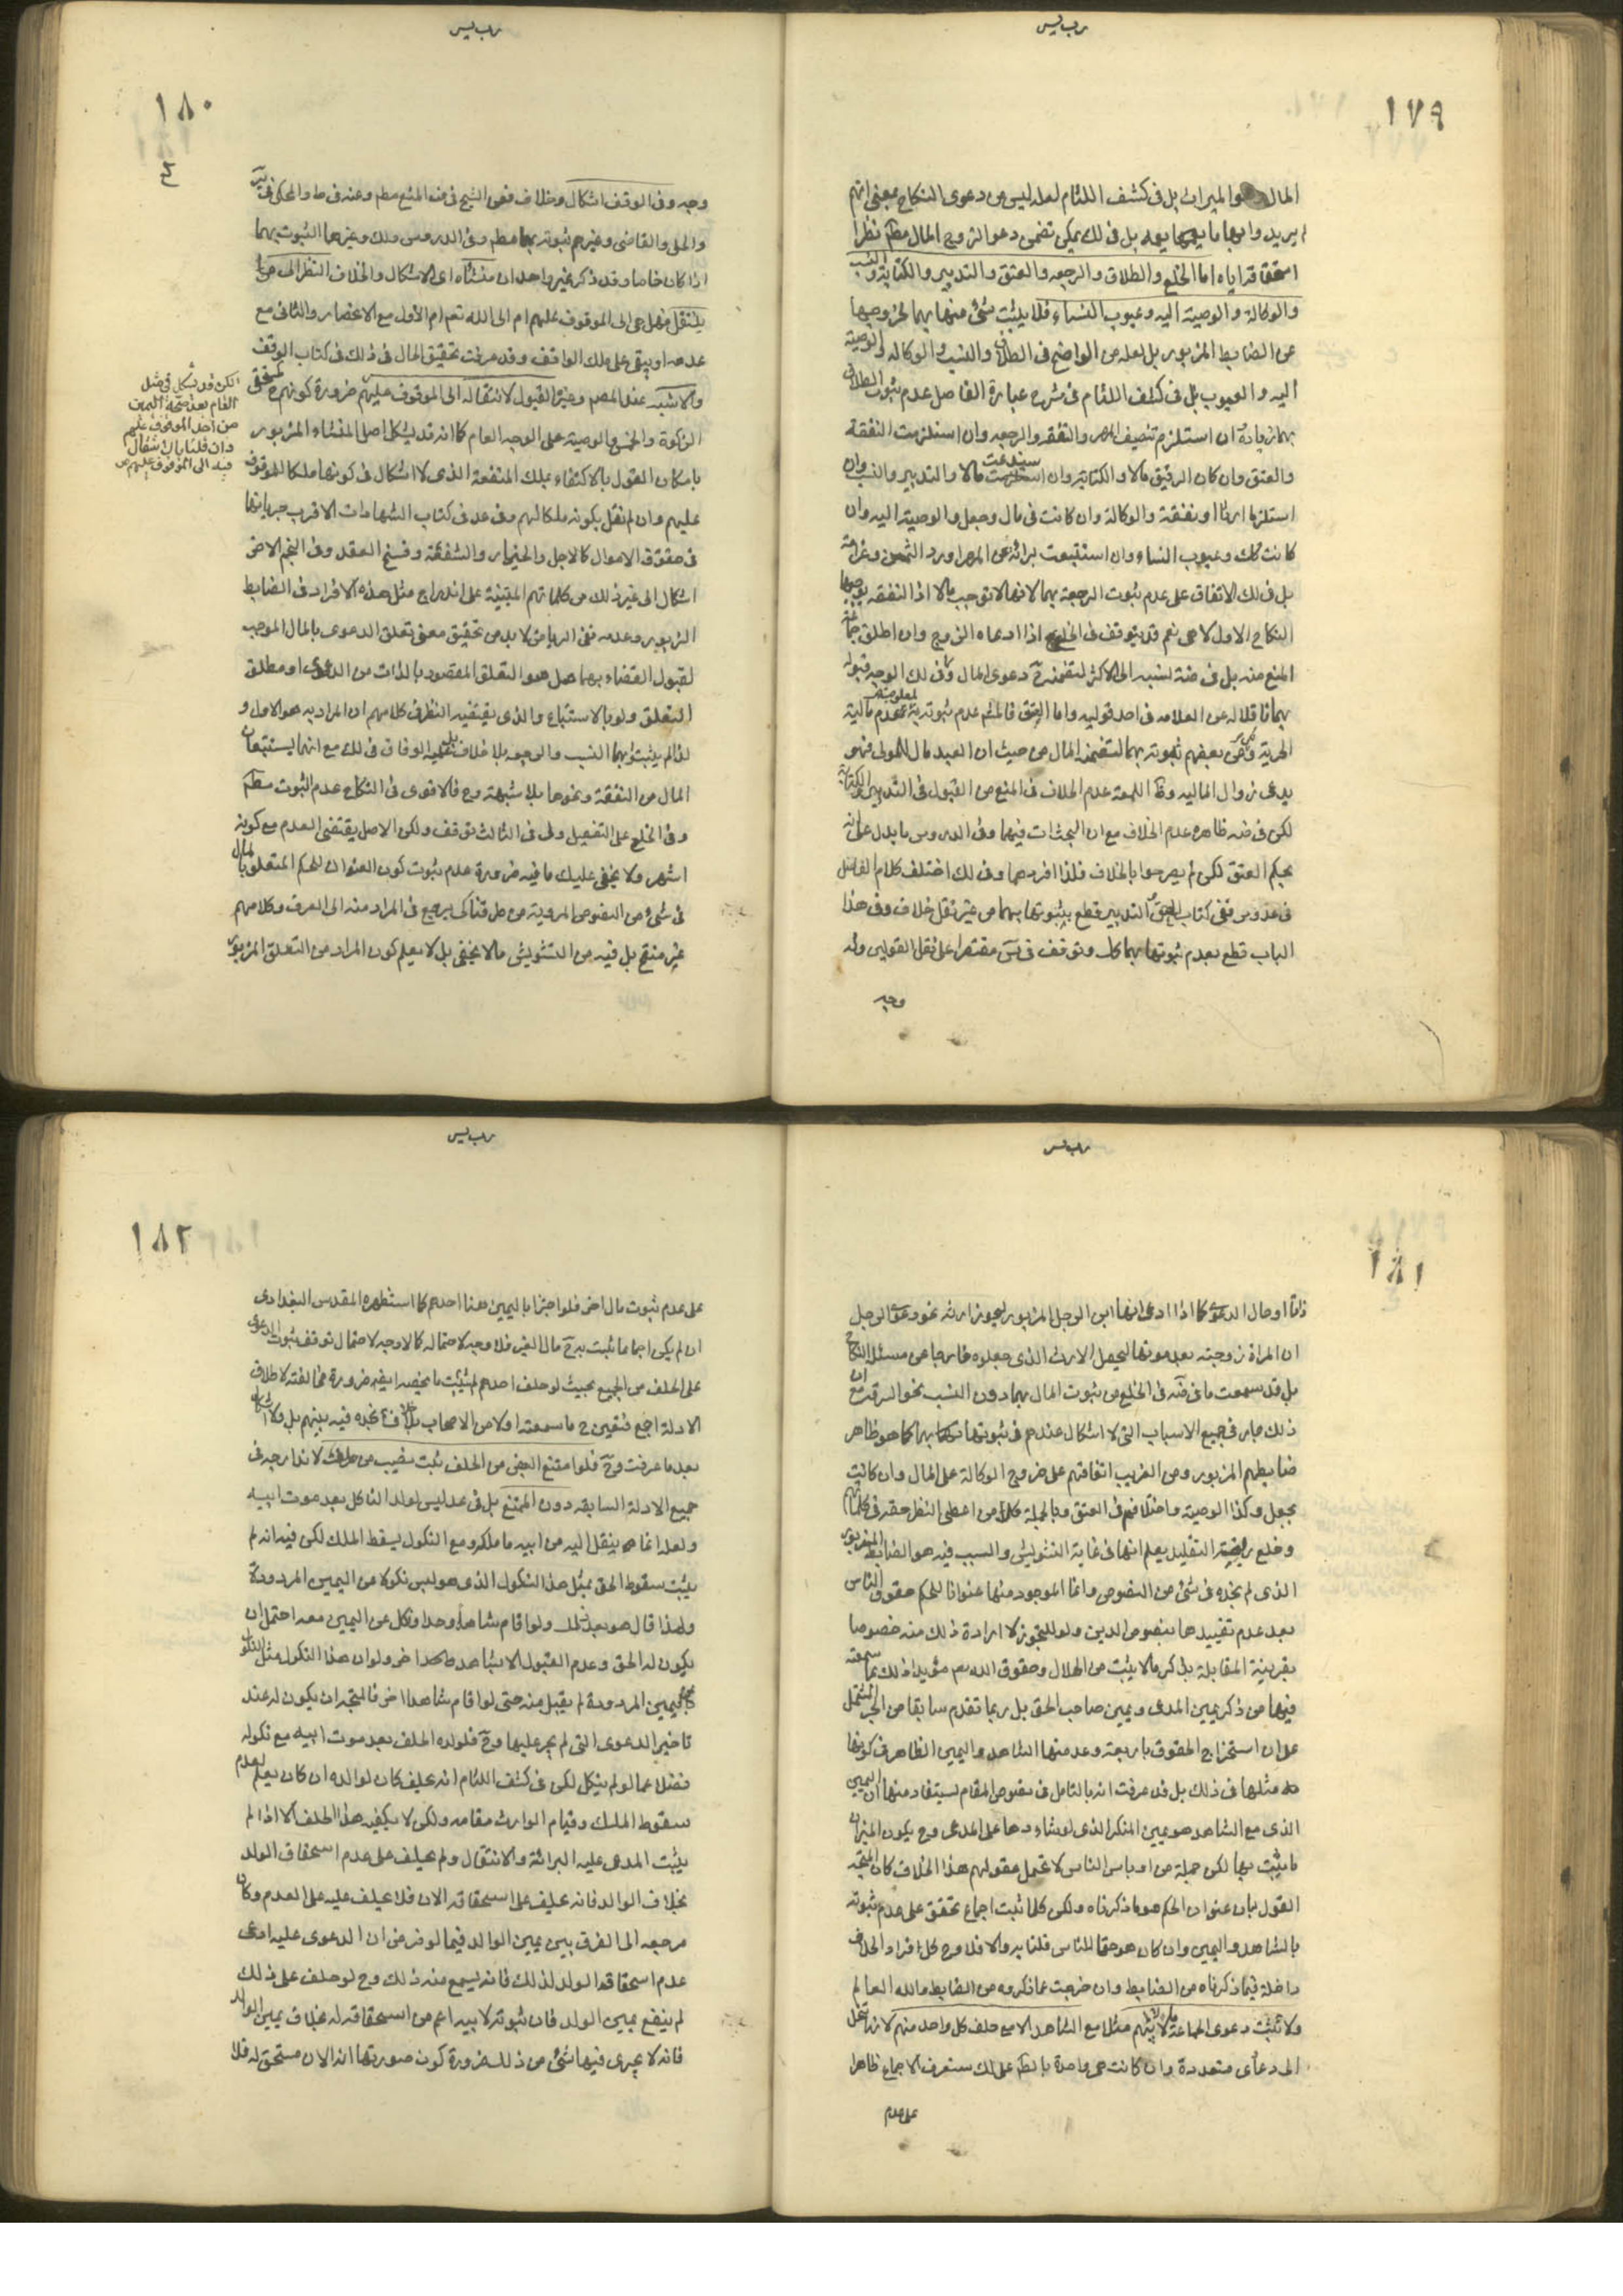 رب يسر
١٧٩
المال والميراث بل فى كشف اللثام لعله ليس من دعوى النكاح بمعنى انهم
لم يريدوا بها ما يعمها بعد بل فى ذلك يمكن تضمن دعوا الزوج المال مطم نظرا
استحقاقه اياه اما الخلع والطلاق والرجعه والعتق والتدبير والكتابة والنسب
والوكالة والوصية اليه وعيوب النساء فلا يثبت شئ منها بهما لخروجها
عن الضابط المزبور بل لعله من الواضح فى الطلاق والنسب والوكاله والوصية
اليه والعيوب بل فى كشف اللثام فى شرح عبارة الفاضل عدم ثبوت الطلاق
بهما زيادة ان استلزم تنصيف المهر والنفقه والرجعه وان استلزمت النفقة
والعتق وان كان الرقيق مالا والكتابة وان استدعت مالا والتدبير والنسب وان
استلزما ارثا او نفقة والوكالة وان كانت فى مال وجعل والوصية اليه وان
كانت كك وعيوب النساء وان استتبعت براءته عن المهر او رد الثمن وغرامة
بل فى لك الاتفاق على عدم ثبوت الرجعة بهما لانها لا توجب مالا اذ النفقه يوجبها
النكاح الاول لا هى نعم قد يتوقف فى الخلع اذا ادعاه الزوج وان اطلق جماعة
المنع منه بل فى ضه نسبه الى الاكثر لتضمنه ح دعوى المال وفى لك الوجه قبوله
بهما ناقلا له عن العلامه فى احد قوليه واما العتق فالمشم عدم ثبوته بهما لعدم مالية
الحرية وعن بعضهم ثبوته بهما لتضمنه المال من حيث ان العبد مال للمولى فهو
يدعى زوال الماليه وظ اللمعة عدم الخلاف فى المنع من القبول فى التدبير والكتابة
لكن فى ضه ظاهره عدم الخلاف مع ان البحث ات فيهما وفى الدروس ما يدل على انه
بحكم العتق لكن لم يصرحوا بالخلاف فلذا افردهما وفى لك اختلف كلام الفاضل
فى عد وس ففى كتاب العتق والتدبير قطع بثبوتهما بهما من غير نقل خلاف وفى هذا
الباب قطع بعدم ثبوتهما بهما كك وتوقف فى س مقتصرا على نقل القولين وله
وجه
رب يسر
١٨٠
وجه وفى الوقف اشكال وخلاف فعن الشيخ فى ف المنع مطم وعنه فى ط والمحكى فى ئر
والحلى والقاضى وغيرهم ثبوته بهما مطم وفى الدروس ولك وغيرهما الثبوت بهما
اذا كان خاصا وقد ذكر غير واحد ان منشأه اى الاشكال والخلاف النظر الى من
ينتقل فهل هى الى الموقوف عليهم ام الى الله تعم ام الأول مع الانحصار والثانى مع
عدمه او يبقى على ملك الواقف وقد عرفت تحقيق الحال فى ذلك فى كتاب الوقف
والاشبه عند المصم وغيره القبول لانتقاله الى الموقوف عليهم ضرورة كونهم ح كمستحقى
الزكوة والخمس والوصية على الوجه العام كما انه قد يشكل اصل المنشاء المزبور
بامكان القول بالاكتفاء بملك المنفعة الذى لا اشكال فى كونها ملكا للموقوف
عليهم وان لم نقل بكونه ملكا لهم وفى عد فى كتاب الشهادات الاقرب جريانها
فى حقوق الاموال كالاجل والخيار والشفعة وفسخ العقد وفى النجم الاخير
اشكال الى غير ذلك من كلماتهم المبتنية على اندراج مثل هذه الافراد فى الضابط
المزبور وعدمه ففى الرياض لا بد من تحقيق معنى تعلق الدعوى بالمال الموجب
لقبول القضاء بهما هل هو التعلق المقصود بالذات من الدعوى او مطلق
التعلق ولو بالاستتباع والذى يقتضيه النظر فى كلامهم ان المراد به هو الاول و
لذا لم يثبتوا بهما النسب والرجعه بلا خلاف بل عليه الوفاق فى لك مع انهما يستتبعان
المال من النفقة ونحوها بلا شبهة وح فالاقوى فى النكاح عدم الثبوت مطم
وفى الخلع على التفصيل ولى فى الثالث توقف ولكن الاصل يقتضى العدم مع كونه
اشهر ولا يخفى عليك ما فيه ضرورة عدم ثبوت كون العنوان للحكم المتعلق بالمال
فى شئ من النصوص المروية من طرقنا كى يرجع فى المراد منه الى العرف وكلامهم
غير منقح بل فيه من التشويش ما لا يخفى بل لا يعلم كون المراد من التعلق المزبور
لكن قد يشكل فى مثل
العام بعد صحة اليمين
من احد الموقوف عليهم
وان قلنا بان انتقال
فيه الى الموقوف عليهم
رب يسر
١٨١
ذاتا او حال الدعوى كما اذا ادعى انها ابن الرجل المزبور ليحوز ارثه نحو دعوى الرجل
ان المراة زوجته بعد موتها ليحصل الارث الذى جعلوه خارجا عن مسئلة النكاح
بل قد سمعت ما فى ضه فى الخلع من ثبوت المال بهما دون النسب نحو السرقة مع ان
ذلك جار فى جميع الاسباب التى لا اشكال عندهم فى ثبوتها بهما كما هو ظاهر
ضابطهم المزبور ومن الغريب اتفاقهم على خروج الوكالة على المال وان كانت
بجعل وكذا الوصية واختلافهم فى العتق وبالجملة كل من اعطى النظر حقه فى كلماتهم
وخلع ربقة التقليد يعلم انها فى غاية التشويش والسبب فيه هو الضابط المزبور
الذى لم نجده فى شئ من النصوص وانما الموجود منها عنوانا للحكم حقوق الناس
بعد عدم تقييدها بنصوص الدين ولو للتجوز لا ارادة ذلك منه خصوصا
بقرينة المقابلة بذكر ما لا يثبت من الهلال وحقوق الله نعم مؤيدا ذلك بما سمعته
فيها من ذكر يمين المدعى ويمين صاحب الحق بل ربما تقدم سابقا من الخبر المشتمل
على ان استخراج الحقوق باربعة وعد منها الشاهد واليمين الظاهر فى كونها
مثلها فى ذلك بل قد عرفت انه بالتامل فى نصوص المقام يستفاد منها ان اليمين
الذى مع الشاهد هو يمين المنكر الذى لو شاء ردها على المدعى وح يكون الميزان
ما يثبت بها لكن جملة من اوباس الناس لا تحمل عقولهم هذا الخلاف كان المتجه
القول بان عنوان الحكم هو ما ذكرناه ولكن كلما ثبت اجماع تحقق على عدم ثبوته
بالشاهد واليمين وان كان هو حقا للناس قلنا به والا فلا وح كل افراد الخلاف
داخلة فيما ذكرناه من الضابط وان خرجت عما ذكروه من الضابط والله العالم
ولا تثبت دعوى الجماعة مالا لابيهم مثلا مع الشاهد الا مع حلف كل واحد منهم لانها تنحل
الى دعاوى متعددة وان كانت هى واحدة بالحكم على لك ستعرف الاجماع ظاهرا
على عدم
رب يسر
١٨٢
على عدم ثبوت مال اخر فلو اجتزا باليمين هنا احدهم كما استظهره المقدس البغدادى
ان لم يكن اجماعا يثبت به ح مال الغير فلا وجه لاحتماله كالا وجه لاحتمال توقف ثبوت الدعوى
على الحلف من الجميع بحيث لو حلف احدهم لم يثبت ما يخصه ايضا ضرورة مخالفته لاطلاق
الادلة اجمع فتعين ح ما سمعته اولا من الاصحاب بلا خلاف نجده فيه بينهم بل ولا اشكال
بعد ما عرفت وح فلو امتنع البعض من الحلف ثبت نصيب من حلف لاندارجه فى
جميع الادلة السابقه دون الممتنع بل فى عد ليس لولد الناكل بعد موت ابيه
ولعله انما ينقل اليه من ابيه ما ملكه ومع النكول يسقط الملك لكن فيه انه لم
يثبت سقوط الحق بمثل هذا النكول الذى هو ليس نكولا عن اليمين المردودة
ولهذا قال هو بعد ذلك ولو اقام شاهدا واحدا ونكل عن اليمين معه احتمل ان
يكون له الحق وعدم القبول الا بشاهد اخر ولو ان هذا النكول مثل النكول
عن اليمين المردودة لم يقبل منه حتى لو اقام شاهدا اخر فالمتجه ان يكون له عند
تاخير الدعوى التى لم يجر عليها وح فلولده الحلف بعد موت ابيه مع نكوله
فضلا عما لو لم ينكل لكن فى كشف اللثام انه يحلف كان لوالده ان كان يعلم لعدم
سقوط الملك وقيام الوارث مقامه ولكن لا يكفيه هذا الحلف الا اذا لم
يثبت المدعى عليه البرائة والانتقال ولم يحلف على عدم استحقاق الولد
بخلاف الوالد فانه يحلف على استحقاقه الان فلا يحلف عليه على العدم وكان
مرجعه الى الفرق بين يمين الوالد فيما لو فرض ان الدعوى عليه ادعى
عدم استحقاق الولد لذلك فانه يسمع منه ذلك وح لو حلف على ذلك
لم ينفع يمين الولد فان ثبوته لابيه اعم من استحقاقه له بخلاف يمين الوالد
فانه لا يجرى فيها شئ من ذلك ضرورة كون صورتها انه الان مستحق له فلا